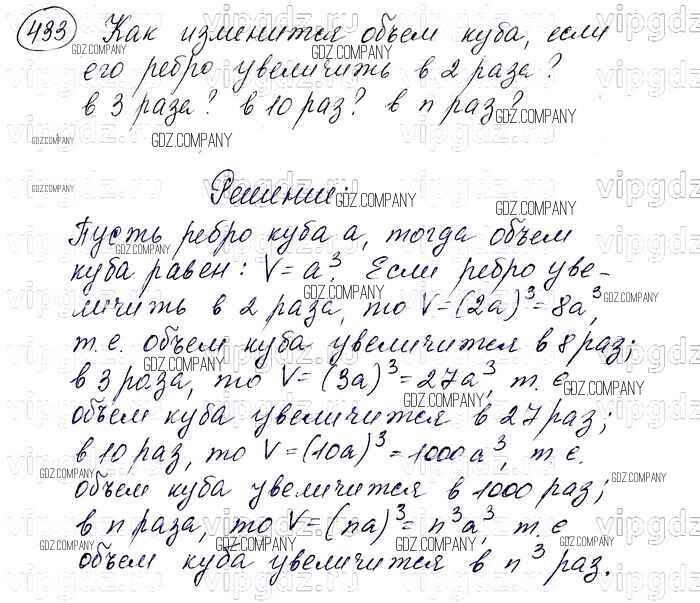 433 Как изменится объем куба, если
его ребро увеличить в 2 раза?
в 3 раза? в 10 раз? в n раз?
Решение:
Пусть ребро куба a, тогда объем
куба равен: V = a³. Если ребро уве-
личить в 2 раза, то V = (2a)³ = 8a³,
т.е. объем куба увеличится в 8 раз;
в 3 раза, то V = (3a)³ = 27a³, т.е
объем куба увеличится в 27 раз;
в 10 раз, то V = (10a)³ = 1000a³, т.е.
объем куба увеличится в 1000 раз;
в n раза, то V = (na)³ = n³a³, т.е
объем куба увеличится в n³ раз.
GDZ.COMPANY
vipgdz.ru